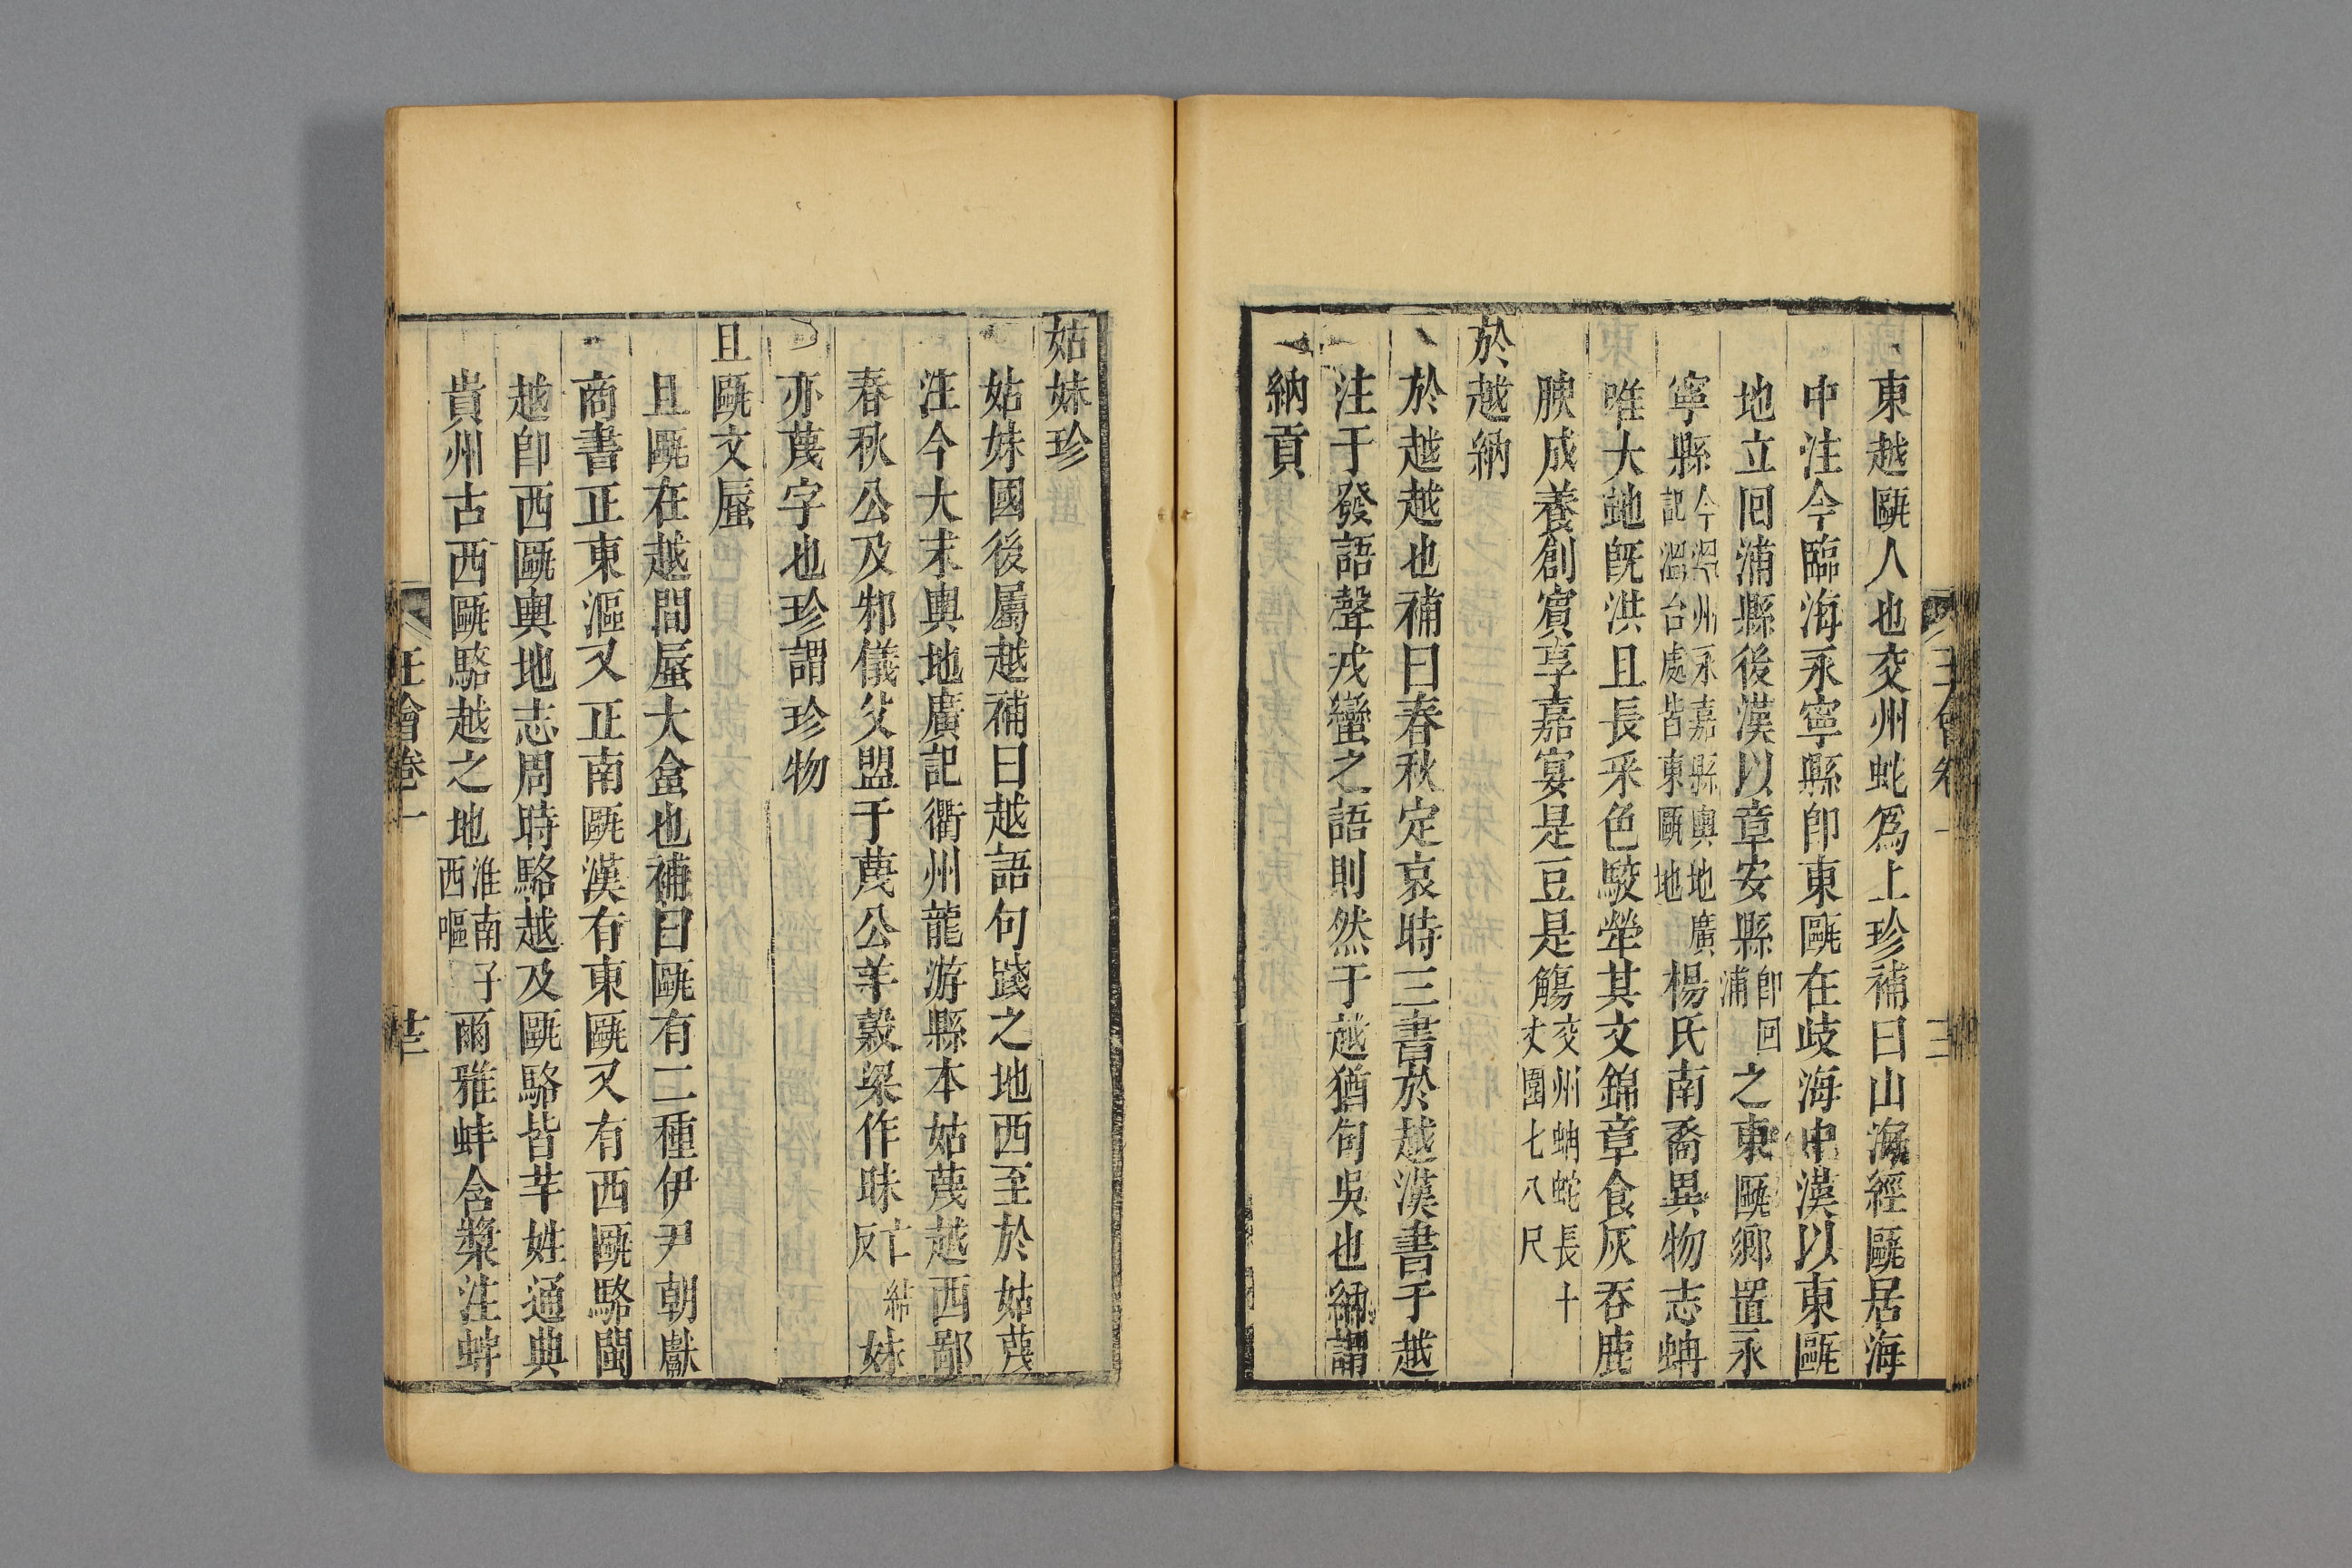 東越甌人也交州蛇爲上珍補曰山海經甌居海
中注今臨海永寧縣卽東甌在歧海中漢以東甌
地立囘浦縣後漢以章安縣卽回浦之東甌鄉置永
寧縣今溫州永嘉縣輿地廣記溫台處皆東甌地楊氏南裔異物志蚺
唯大虵旣洪且長采色駮犖其文錦章食灰吞鹿
腴成養創賓享嘉宴是豆是觴交州蚺蛇長十丈圍七八尺
於越納
於越越也補曰春秋定哀時三書於越漢書于越
注于發語聲戎蠻之語則然于越猶句吳也納謂
納貢
姑妹珍
姑妹國後屬越補曰越語句踐之地西至於姑蔑
注今大末輿地廣記衢州龍游縣本姑蔑越西鄙
春秋公及邾儀父盟于蔑公羊穀梁作眜亡結反妹
亦蔑字也珍謂珍物
且甌文蜃
且甌在越間蜃大盒也補曰甌有二種伊尹朝獻
商書正東漚又正南甌漢有東甌又有西甌駱閩
越卽西甌輿地志周時駱越及甌駱皆芊姓通典
貴州古西甌駱越之地淮南子西嘔爾雅蚌含漿注蚌
王會卷一